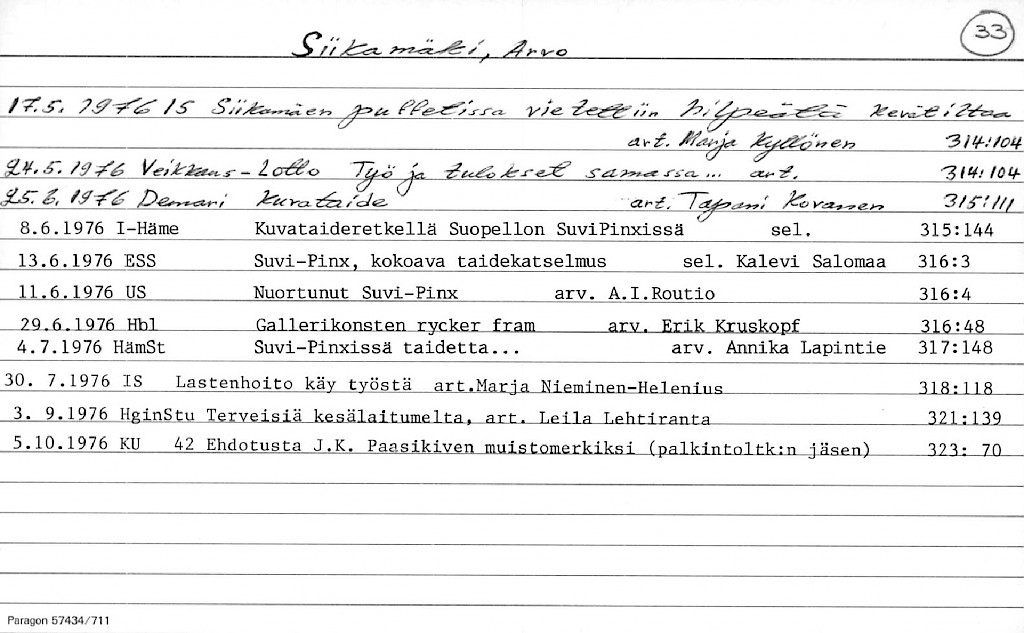 33
Siikamäki, Arvo
17.5.1976 IS Siikamäen pulletissa vietettiin hilpeätä kevätiltaa
art. Marja Kyllönen 314:104
24.5.1976 Veikkaus-Lotto Työ ja tulokset samassa... art. 314:104
25.6.1976 Demari Kuvataide art. Tapani Kovanen 315:111
8.6.1976 I-Häme Kuvataideretkellä Suopellon SuviPinxissä sel. 315:144
13.6.1976 ESS Suvi-Pinx, kokoava taidekatselmus sel. Kalevi Salomaa 316:3
11.6.1976 US Nuortunut Suvi-Pinx arv. A.I.Routio 316:4
29.6.1976 Hbl Gallerikonsten rycker fram arv. Erik Kruskopf 316:48
4.7.1976 HämSt Suvi-Pinxissä taidetta... arv. Annika Lapintie 317:148
30. 7.1976 IS Lastenhoito käy työstä art.Marja Nieminen-Helenius 318:118
3. 9.1976 HginStu Terveisiä kesälaitumelta, art. Leila Lehtiranta 321:139
5.10.1976 KU 42 Ehdotusta J.K. Paasikiven muistomerkiksi (palkintoltk:n jäsen) 323: 70
Paragon 57434/711